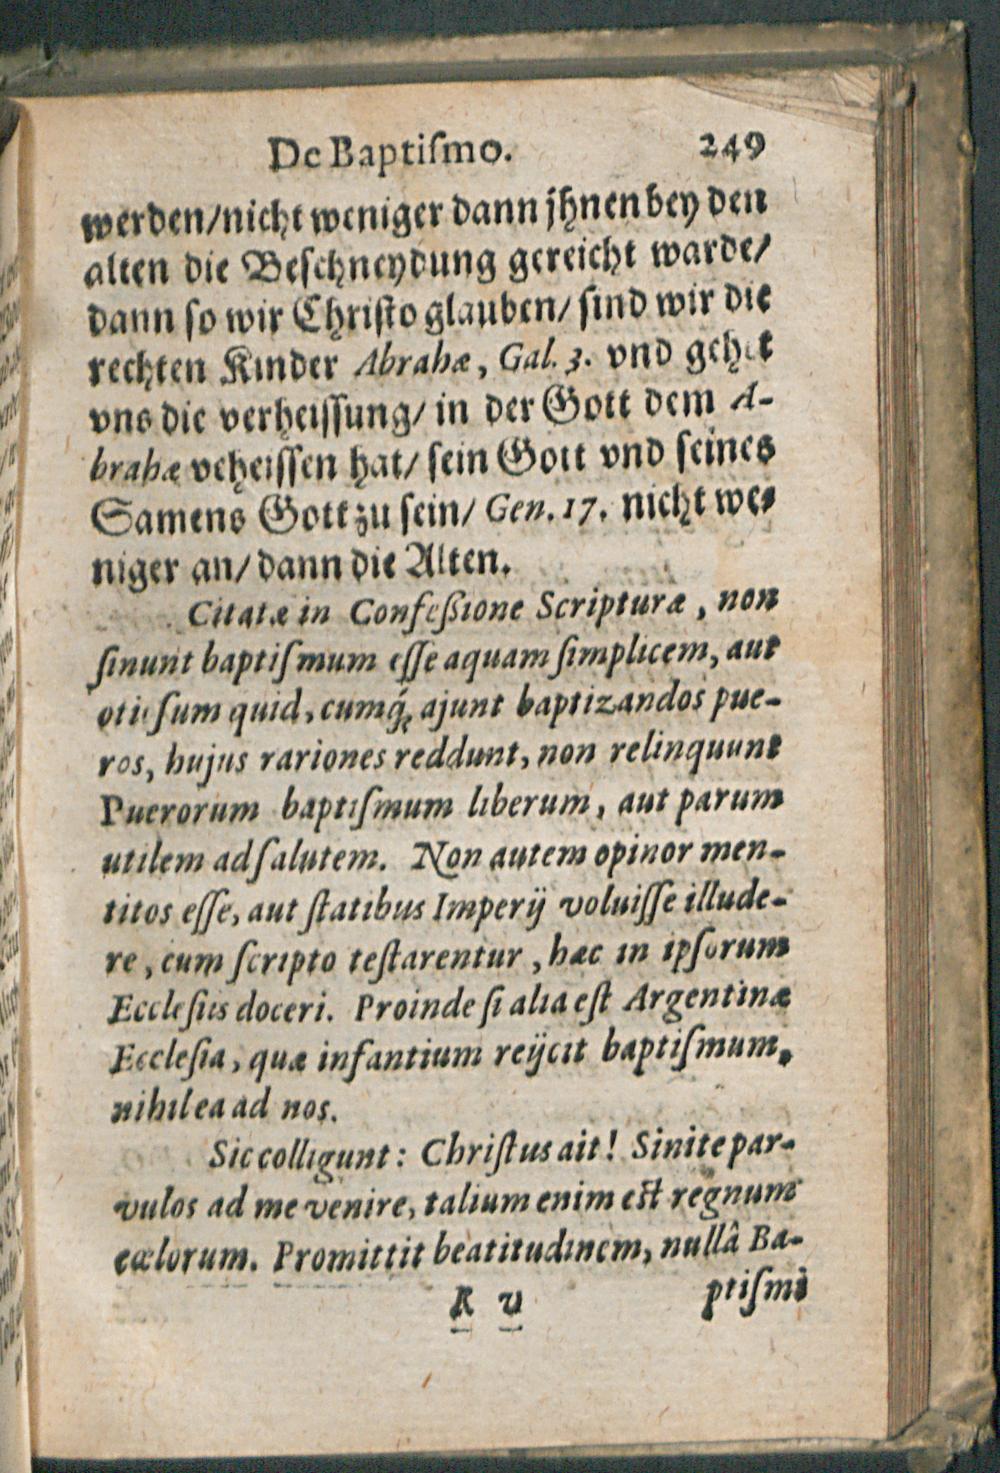 De Baptiſmo. 249
werden/nicht weniger dann jhnen bey den
alten die Beſchneydung gereicht warde/
dann ſo wir Chriſto glauben/ ſind wir die
rechten Kinder Abrahæ, Gal. 3. vnd gehet
vns die verheiſſung/ in der Gott dem A-
brahæ veheiſſen hat/ ſein Gott vnd ſeines
Samens Gott zu ſein/ Gen. 17. nicht we-
niger an/ dann die Alten.
Citatæ in Confeßione Scripturæ, non
ſinunt baptiſmum eſſe aquam ſimplicem, aut
otioſum quid, cumq́; ajunt baptizandos pue-
ros, hujus rariones reddunt, non relinquunt
Puerorum baptiſmum liberum, aut parum
utilem ad ſalutem. Non autem opinor men-
titos eſſe, aut ſtatibus Imperij voluiſſe illude-
re, cum ſcripto teſtarentur, hæc in ipſorum
Eccleſiis doceri. Proinde ſi alia eſt Argentinæ
Eccleſia, quæ infantium reijcit baptiſmum,
nihil ea ad nos.
Sic colligunt: Chriſtus ait! Sinite par-
vulos ad me venire, talium enim eſt regnum
cælorum. Promittit beatitudinem, nullâ Ba-
R v ptiſmi